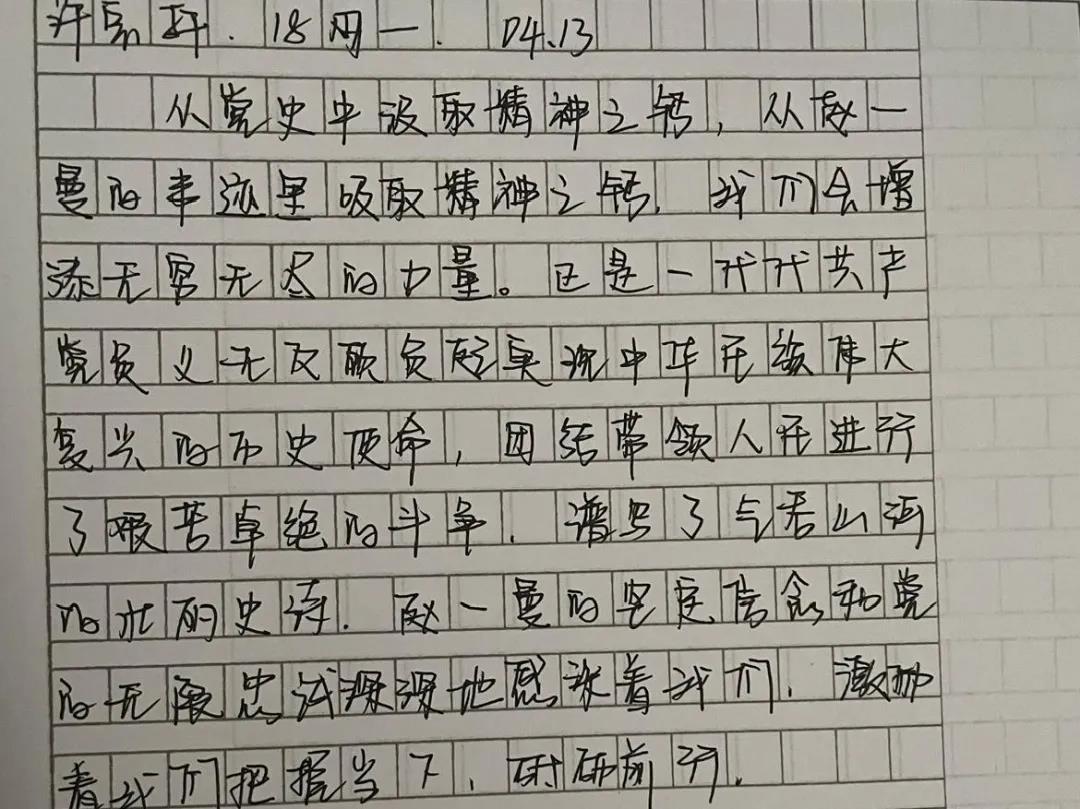 18网一. 04.13
从党史中汲取精神之钙，从赵一
曼的事迹里吸取精神之钙，我们会增
添无穷无尽的力量。这是一代代共产
党员义无反顾负起实现中华民族伟大
复兴的历史使命，团结带领人民进行
了艰苦卓绝的斗争，谱写了气吞山河
的壮丽史诗.赵一曼的坚定信念和党
的无限忠诚深深地感染着我们，激励
着我们把握当下，砥砺前行.